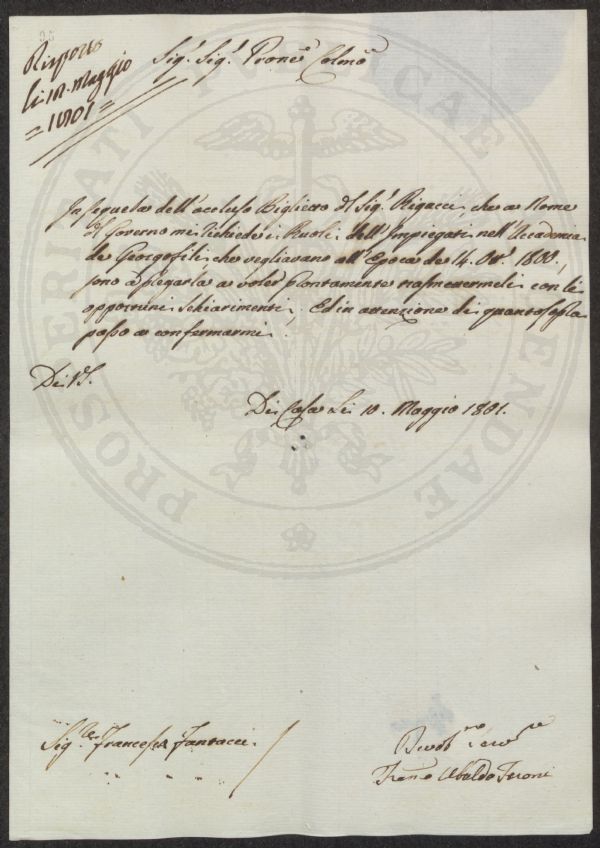 Risposto
li 12. Maggio
= 1801 =
Sig.r Sig.r Prone Colmo
In sequela dell'accluso Biglietto del Sig.r Rigacci, che a Nome
del Governo mi richiede i Ruoli dell'Impiegati nell'Accademia
de Georgofili che vegliavano all'Epoca de 14. Ott. 1800,
sono a pregarla a voler prontamente trasmettermeli con li
opportuni schiarimenti, Ed in attenzione di quanto sopra
passo a confermarmi
Di VS.
Di Casa Li 10. Maggio 1801.
Sig.re Francesco Fantacci
Devot.mo Serv.re
Fran.o Ubaldo Feroni
PROSPERITATI PUBLICAE AUGENDAE